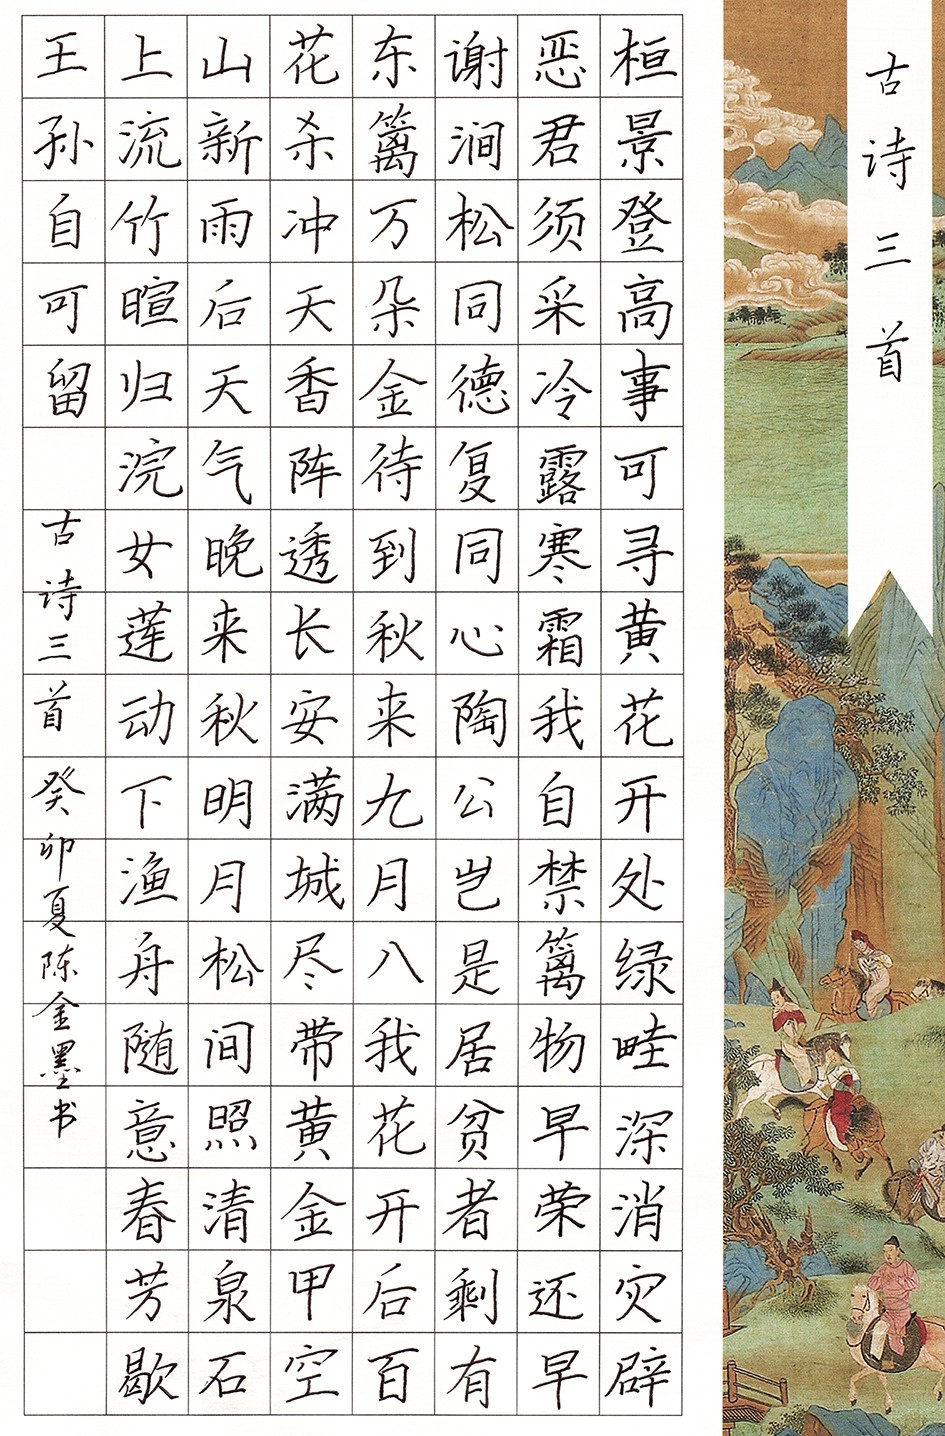 古诗三首
桓景登高事可寻黄花开处绿畦深消灾辟
恶君须采冷露寒霜我自禁篱物早荣还早
谢涧松同德复同心陶公岂是居贫者剩有
东篱万朵金待到秋来九月八我花开后百
花杀冲天香阵透长安满城尽带黄金甲空
山新雨后天气晚来秋明月松间照清泉石
上流竹暄归浣女莲动下渔舟随意春芳歇
王孙自可留
古诗三首癸卯夏陈金墨书